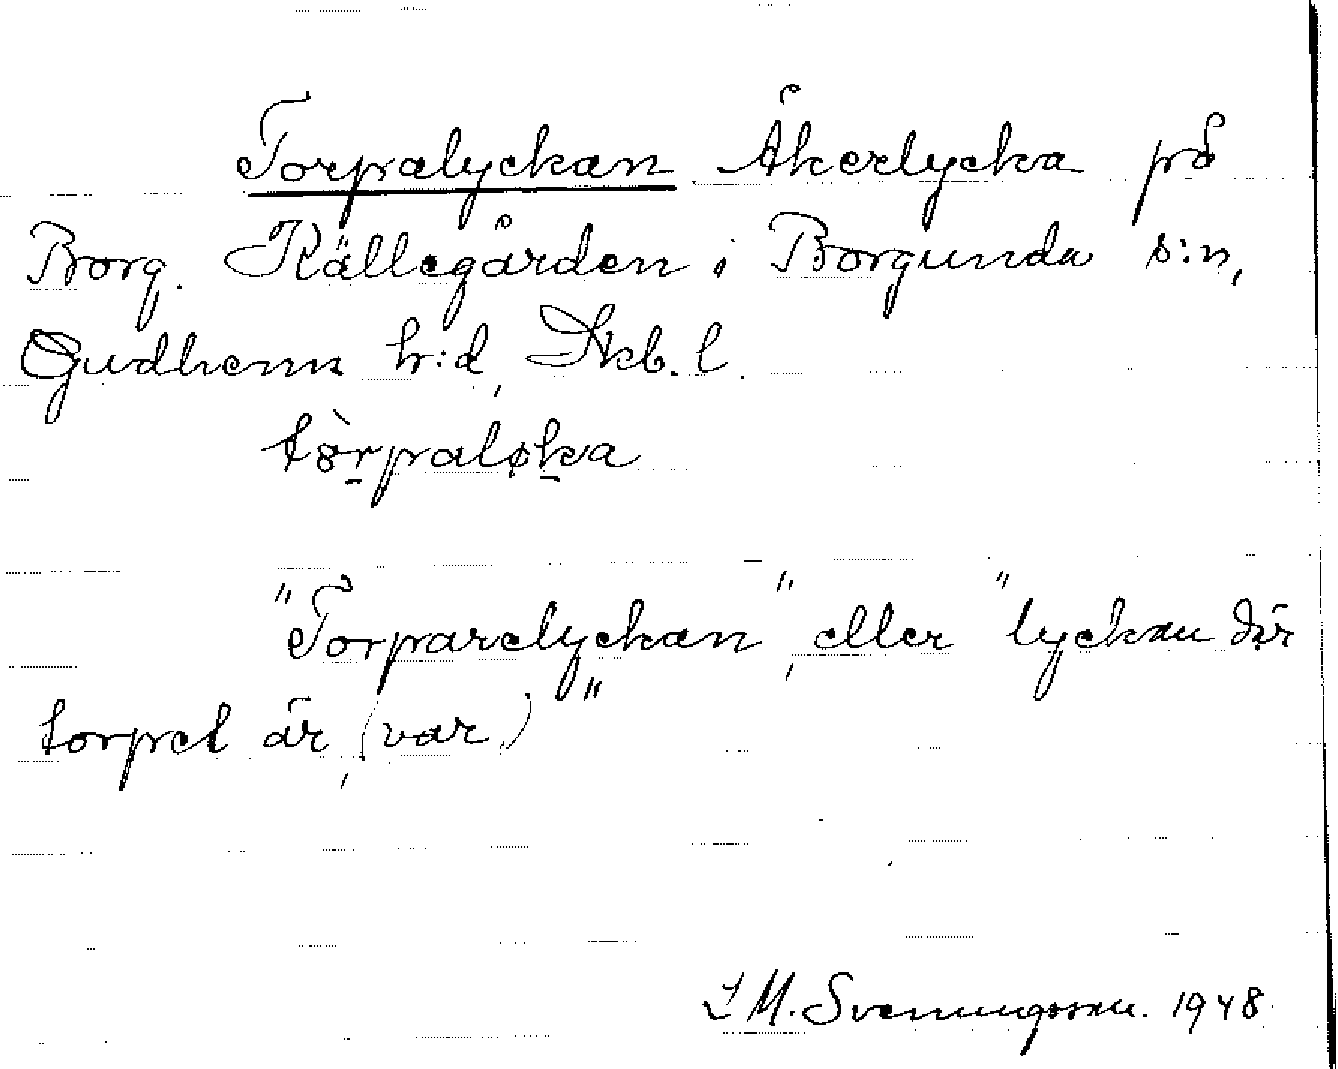 Torpalyckan Åkerlycka på
Borg. Källegården i Borgunda s:n,
Gudhems h:d, Skb. l.
tòrpaløka
"Torparelyckan", eller "lyckan där
torpet är, (var)"
S M. Svenningsson. 1948